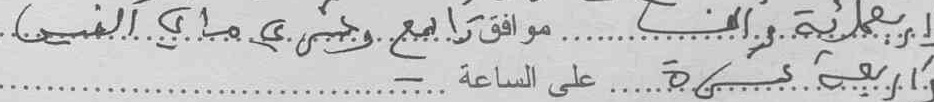 اربعمائة و الف ........ موافق رابع وعشري ماي الفين
و اربعة عشرة ..... على الساعة –